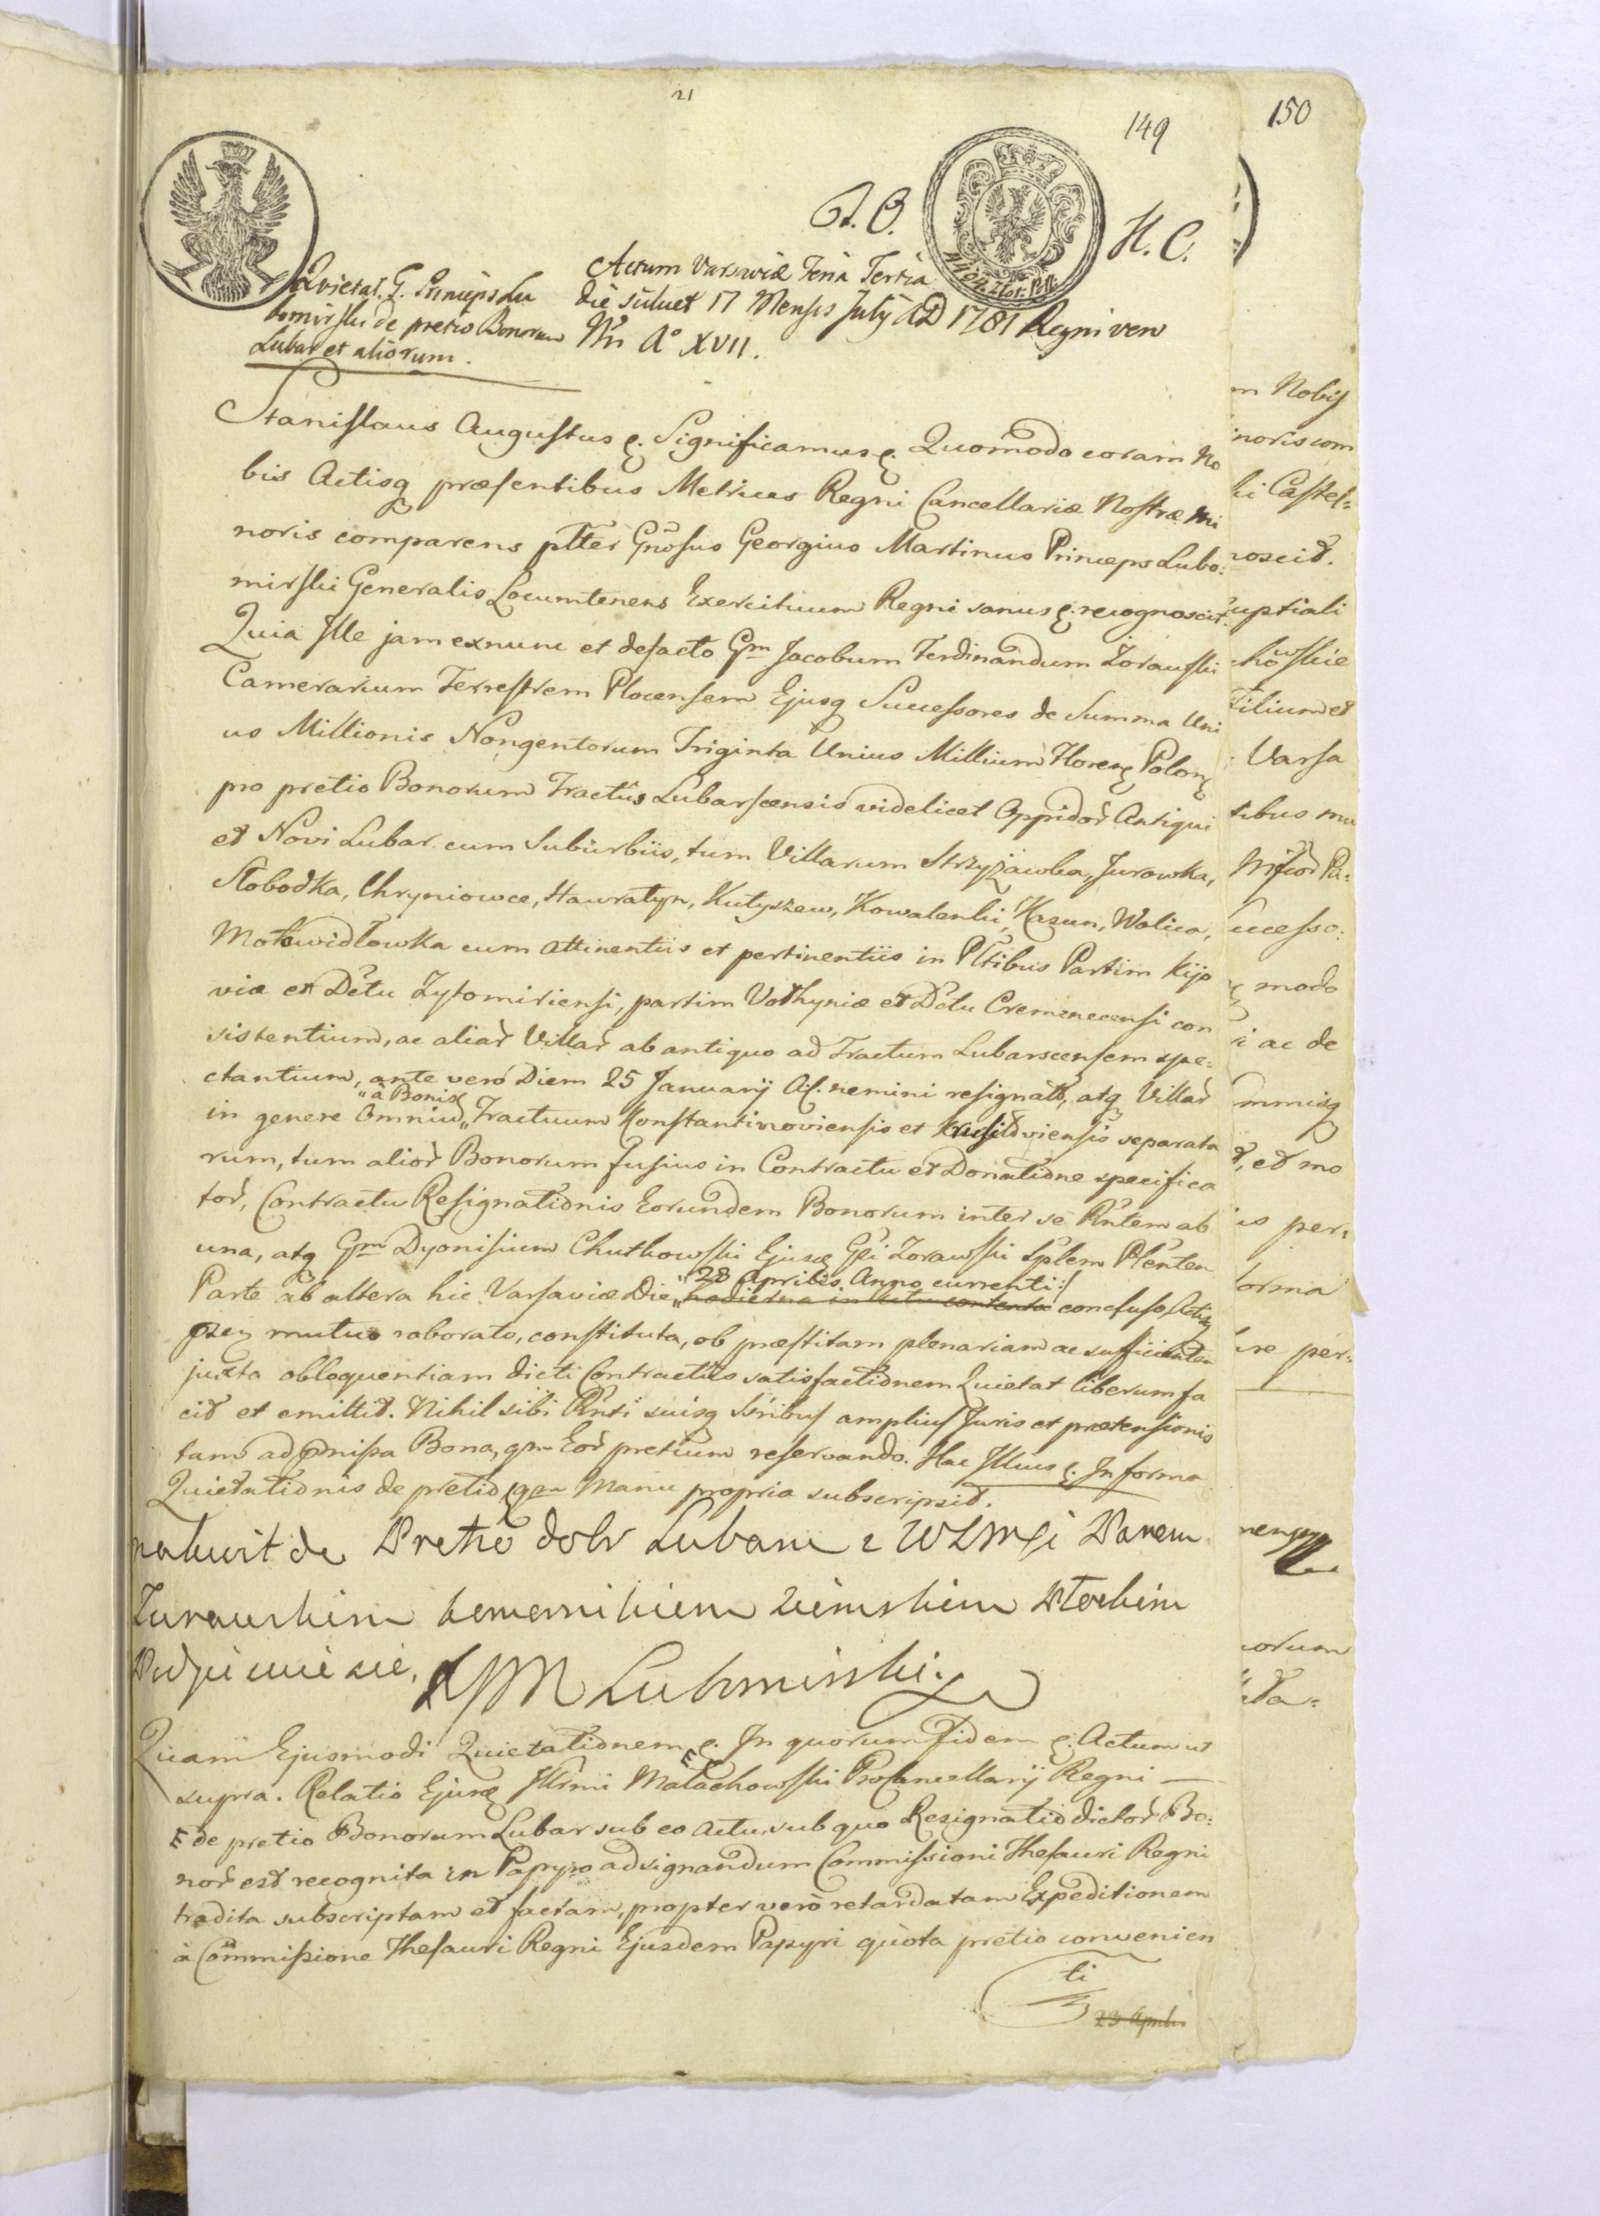 21
149
150
A. O.
H. C.
4 gr. Złot: Pol:
Actum Varsaviæ Feria Tertia
die silicet 17 Mensis July AD 1781 Regni vero
Nri A° XVII.
Quietat. G. Princips Lu
bomirski de pretio Bonorum
Lubar et aliorum.
Stanislaus Augustus ę. Significamus ę. Quomodo coram No
bis Actisq præsentibus Metrices Regni Cancellariæ Nostræ Mi
noris comparens plter Gnosus Georgius Martinus Princeps Lubo:
mirski Generalis Locumtenens Exercituum Regni sanus ę. recognoscit.
Quia Ille jam exnunc et defacto Gm Jacobum Ferdinandum Żorawski
Camerarium Terrestrem Plocensem Ejusq Successores de Summa Uni
us Millionis Nongentorum Triginta Unius Millium Florenę Polonę
pro pretio Bonorum Tractûs Lubarscensis videlicet Oppidor Antiqui
et Novi Lubar cum Suburbiis, tum Villarum Strzyżawka, Jurowka,
Słobodka, Chryniowce, Hawratyn, Kutyszew, Kowalenki, Kazun, Wolica,
Motowidłowka cum attinentiis et pertinentiis in Pltibus Partim Kijo
viæ et Dctu Zytomiriensi, partim Volhyniæ et Dctu Cremenecensi con
sistentium, ac aliar Villar ab antiquo ad Tractum Lubarscensem spe:
ctantium, ante vero Diem 25 Januarij Ac. nemini resignat, atq Villar
" à Bonis
in genere Omniu " Tractuum Konstantinoviensis et separata
rum, tum alior Bonorum fusius in Contractu et Donatione specifica
tor, Contractu Resignationis Eorundem Bonorum inter se Rntem ab
una, atq Gm Dyonisium Chutkowski Ejusę Gsi Zorawski Splem Plenten
28 Aprilis Anno currenti:/
Parte ab altera hic Varsaviæ Die " hodierna in actu contento concluso Actisq
mutuo roborato, constituta, ob præstitam plenariam ac sufficientem
juxta obloquentiam dicti Contractûs satisfactionem Quietat liberum fa
cit et emittit. Nihil sibi Rnti suisq Ssribus amplius Juris et prætensionis
tam ad pmissa Bona, qm Eor pretium reservando. Hac Illius ę. In forma
Quietationis de pretio qm Manu propria subscripsit.
de Pretio dobr Lubaru z WJmCi Panem
Zurawskim komornikiem ziemskim Płockim
Podpisuie sie, XJM Lubomirski
Quam Ejusmodi Quietationem ę. In quorum Fidem ę. Actum ut
supra. Relatio Ejusę Illrmi Małachowski Procancellarij Regni —
E de pretio Bonorum Lubar sub eo actu, sub quo Resignatio dictor Bo:
nor est recognita in Papyro adsignandum Commissioni Thesauri Regni
tradita subscriptam et factam, propter verò retardatam Expeditionem
à Commissione Thesauri Regni Ejusdem Papyri quòta pretio convenien
ti
23 Aprilis
m Nobis
inoris com
ki Castel=
noscit.
uptiali
howskie
Filium et
Varsa
tibus mu
ucesso:
modo
i ac de
mmisq
t, et mo
us per:
forma
ure per:
orum